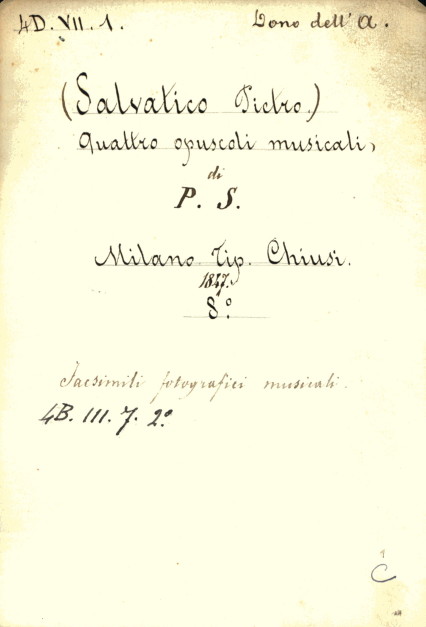 4D. VII. 1. Dono dell' A.
(Salvatico Pietro.)
Quattro opuscoli musicali,
di
P. S.
Milano Tip. Chiusi.
1847.
8°
Facsimili fotografici musicali.
4B. III. 7. 2°
C